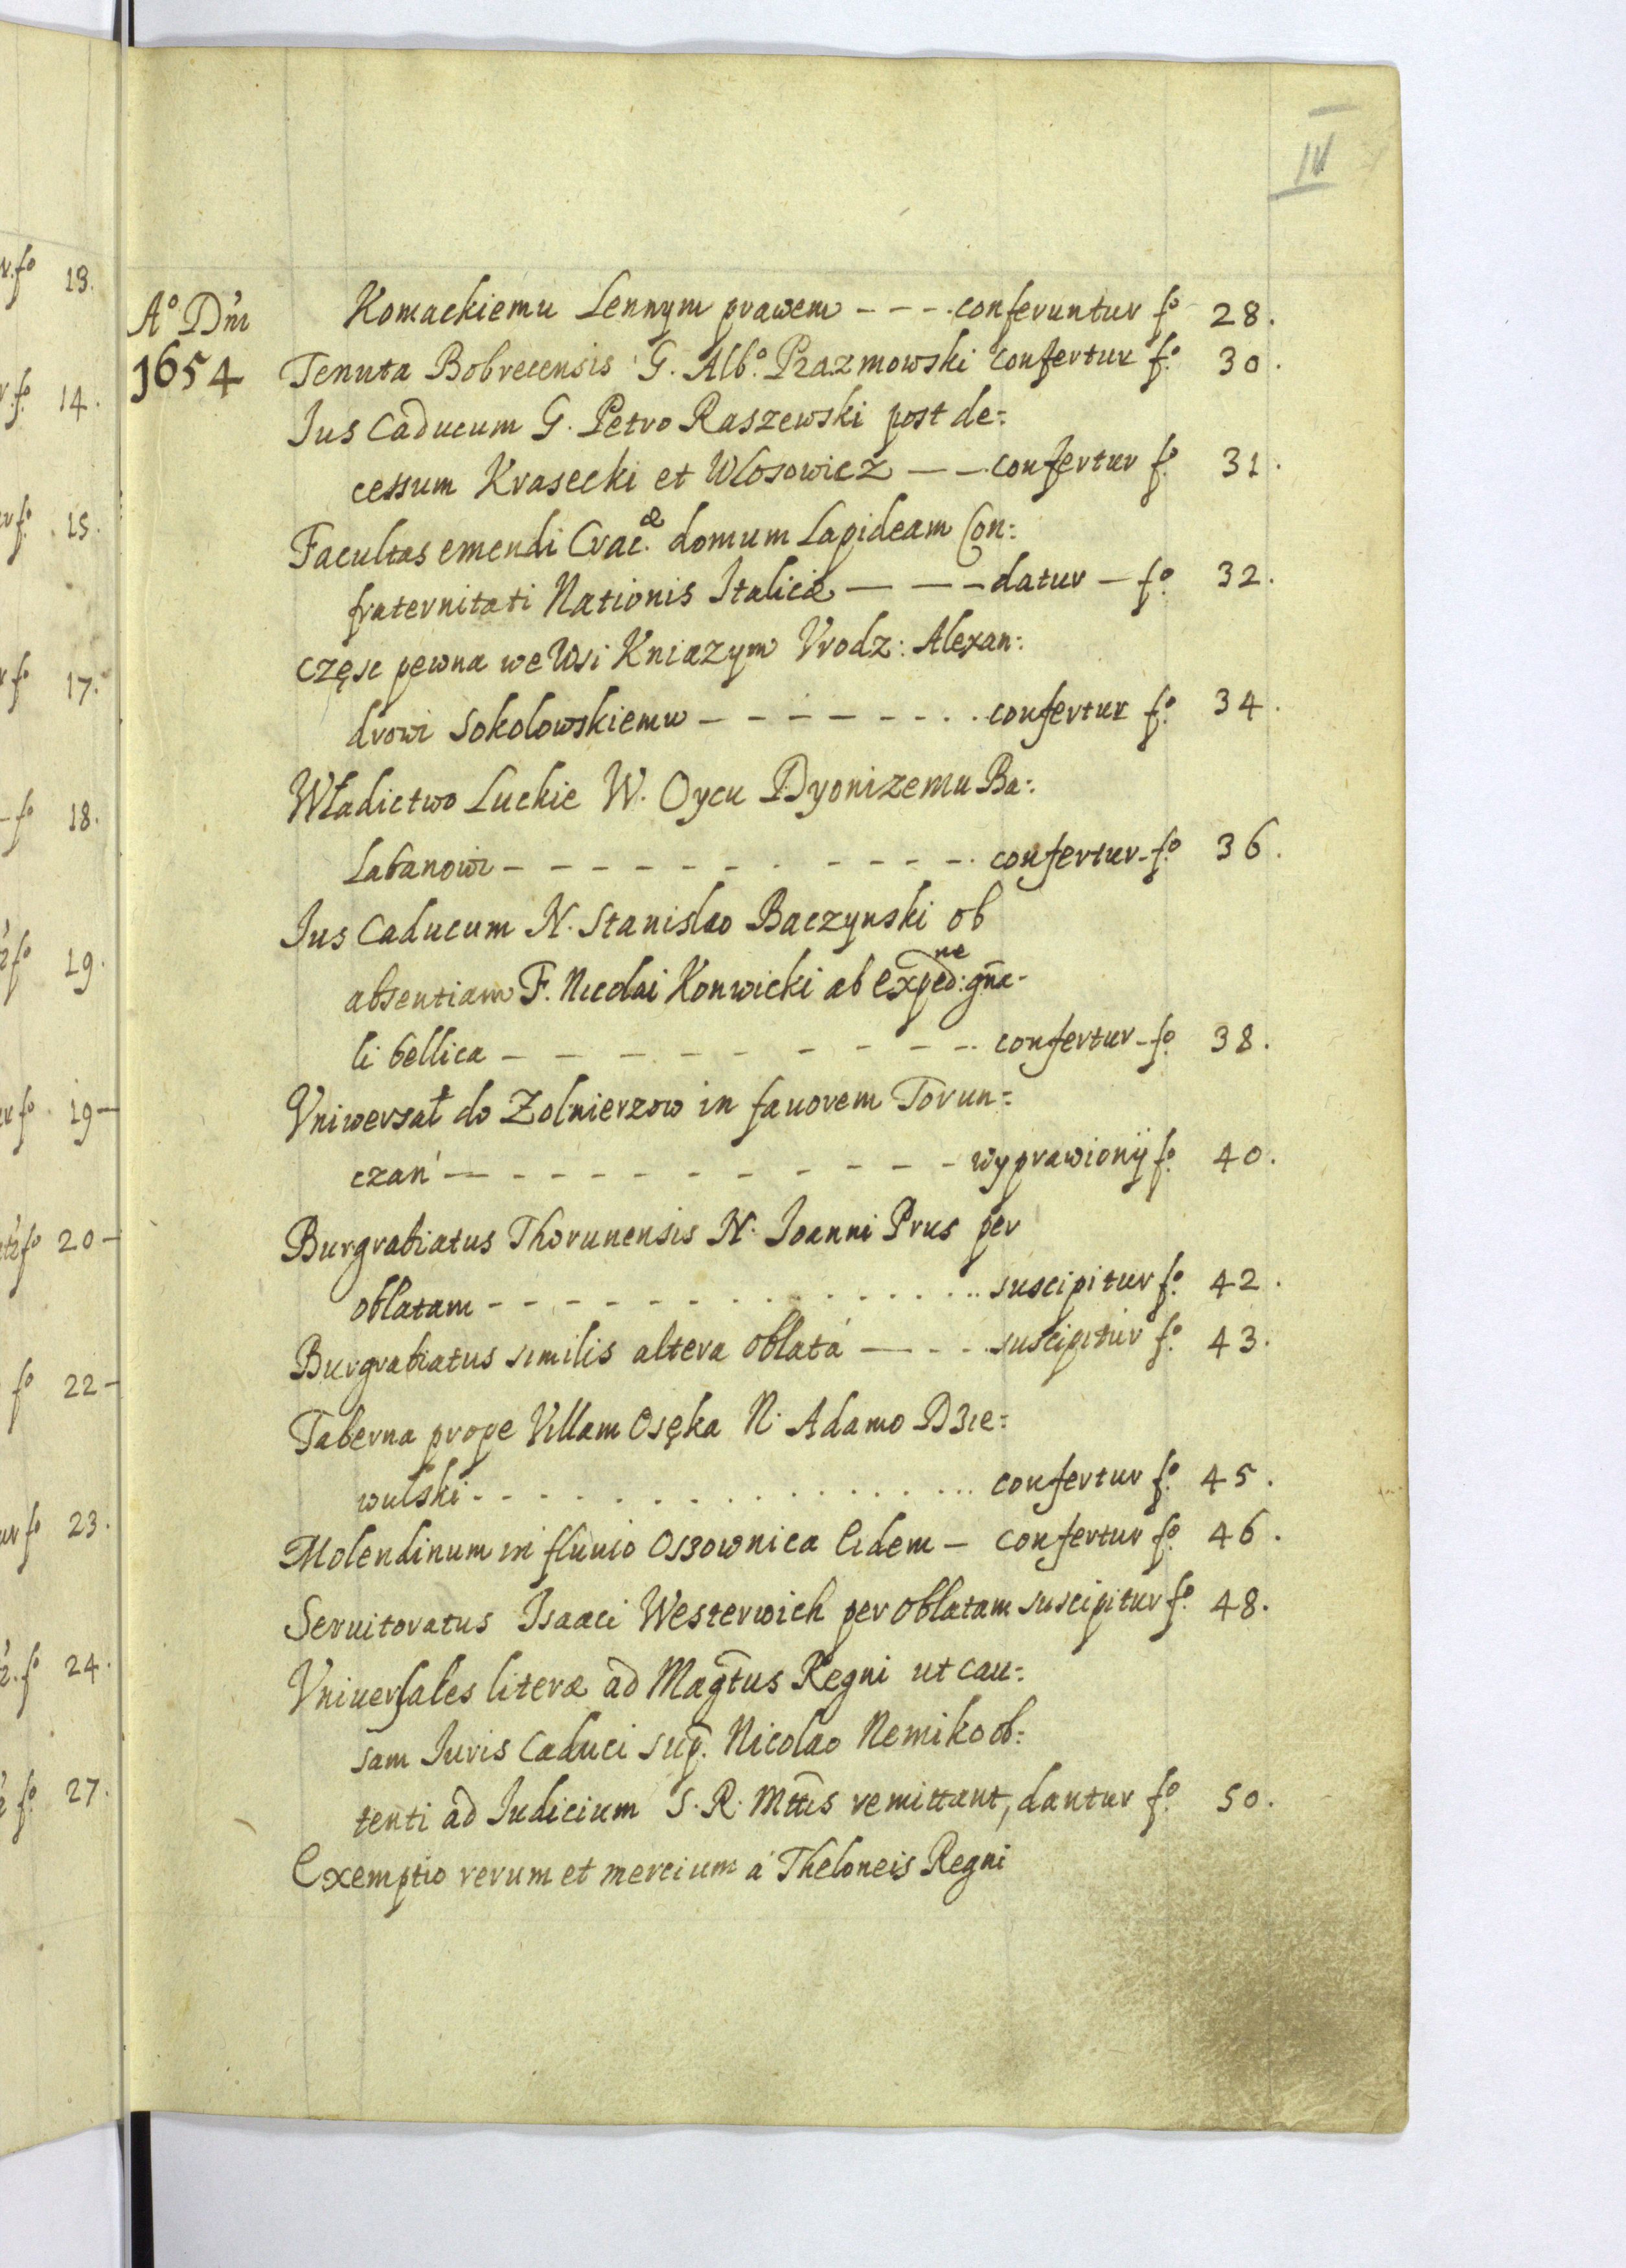 IV
Aº Dn̄i
1654
Komackiemu Lennym prawem - - - - conferuntur fº 28.
Tenuta Bobrecensis G. Albº. Prazmowski confertur fº. 30.
Ius Caducum G. Petro Raszewski post de=
cessum Krasecki et Wlosowicz — — confertur fº. 31.
Facultas emendi Crac.æ domum Lapideam Con=
fraternitati Nationis Italicæ — — — datur — fº. 32.
częsc pewna we Wsi Kniazym Vrodz: Alexan=
drowi Sokolowskiemu - - - - - - - . . confertur fº. 34.
Władictwo Luckie W. Oycu Dyonizemu Ba=
Labanowi - - - - - - - - - - - - confertur - fº. 36.
Ius Caducum N. Stanislao Baczynski ob
absentiam F. Nicolai Konwicki ab Exped:ne gn̄a-
li bellica - - - - - - - - - - confertur - fº. 38.
Vniwersał do Zolnierzow in fauorem Torun=
czań - - - - - - - - - - - - wyprawionÿ fº. 40.
Burgrabiatus Thorunensis N. Ioanni Prus per
oblatam - - - - - - . . . . . . . . suscipitur fº. 42.
Burgrabiatus similis altera oblatá — - - . suscipitur fº. 43.
Taberna prope Villam Osęka N. Adamo Dzie=
wulski - . . . . . . . . . . . . . . confertur fº. 45.
Molendinum in fluuio Oszownica Eidem — confertur fº. 46.
Seruitoratus Isaaci Westerwich per oblatam suscipitur fº. 48.
Vniuersales literæ ad Mag̃tus Regni ut cau=
sam Iuris Caduci sup. Nicolao Nemiko ob=
tenti ad Iudicium S. R. Mttis remittant, dantur fº. 50.
Exemptio rerum et mercium á Theloneis Regni
fº 13.
fº. 14.
fº. 15.
fº 17.
fº 18.
fº 19.
fº 19—
fº 20—
fº 22—
fº 23.
fº 24.
fº. 27.